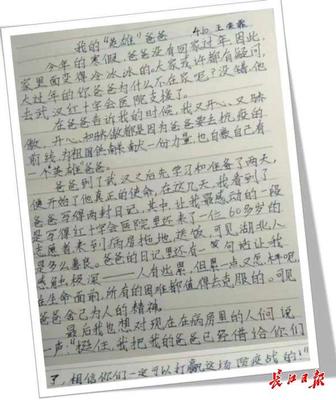 我的"英雄"爸爸
今年的寒假,爸爸没有回家过年,因此,
家里面变得冷冰冰的。大家或许都有疑问,
大过年的你爸爸为什么不在家呢?没错,他
去武汉红十字会医院支援了。
在爸爸告诉我的时候,我又开心,又骄
傲。开心和骄傲都是因为爸爸要去抗疫的
前线,为祖国献一份力量,也自己有
一个英雄爸爸。
爸爸到了武汉又后先学习和准备了两天,
便开始了他真正的使命,在这几天,我看到了
爸爸写得两封日记。其中,让我最感动的一段
是写得红十字会医院里还来了一位60多岁的
志愿者来到病房拖地,送饭,可见湖北人
是多么善良。爸爸的日记里还有一句话让我
感触极深——人有出累,但累一点又怎么样呢,
在生命面前,所有的困难都值得去克服的。可见
爸爸舍己为人的精神。
最后我也想对现在在病房里的人们说
一声:"挺住,我把我的爸爸已经借给你们
了,相信你们一定可以打赢这场的!"
长江日报